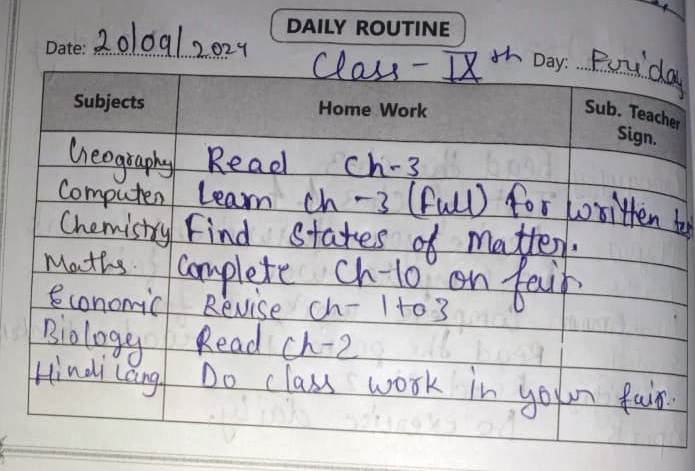 DAILY ROUTINE
Date: 20/09/2024 Class - IXth Day: Friday
Subjects Home Work Sub. Teacher Sign.
Geography Read Ch-3
Computer Learn ch-3 (full) for written
Chemistry Find States of Matter.
Maths. Complete Ch-10 on fair
Economic Revise ch- 1 to 3
Biology Read ch-2
Hindi Lang. Do class work in your fair.